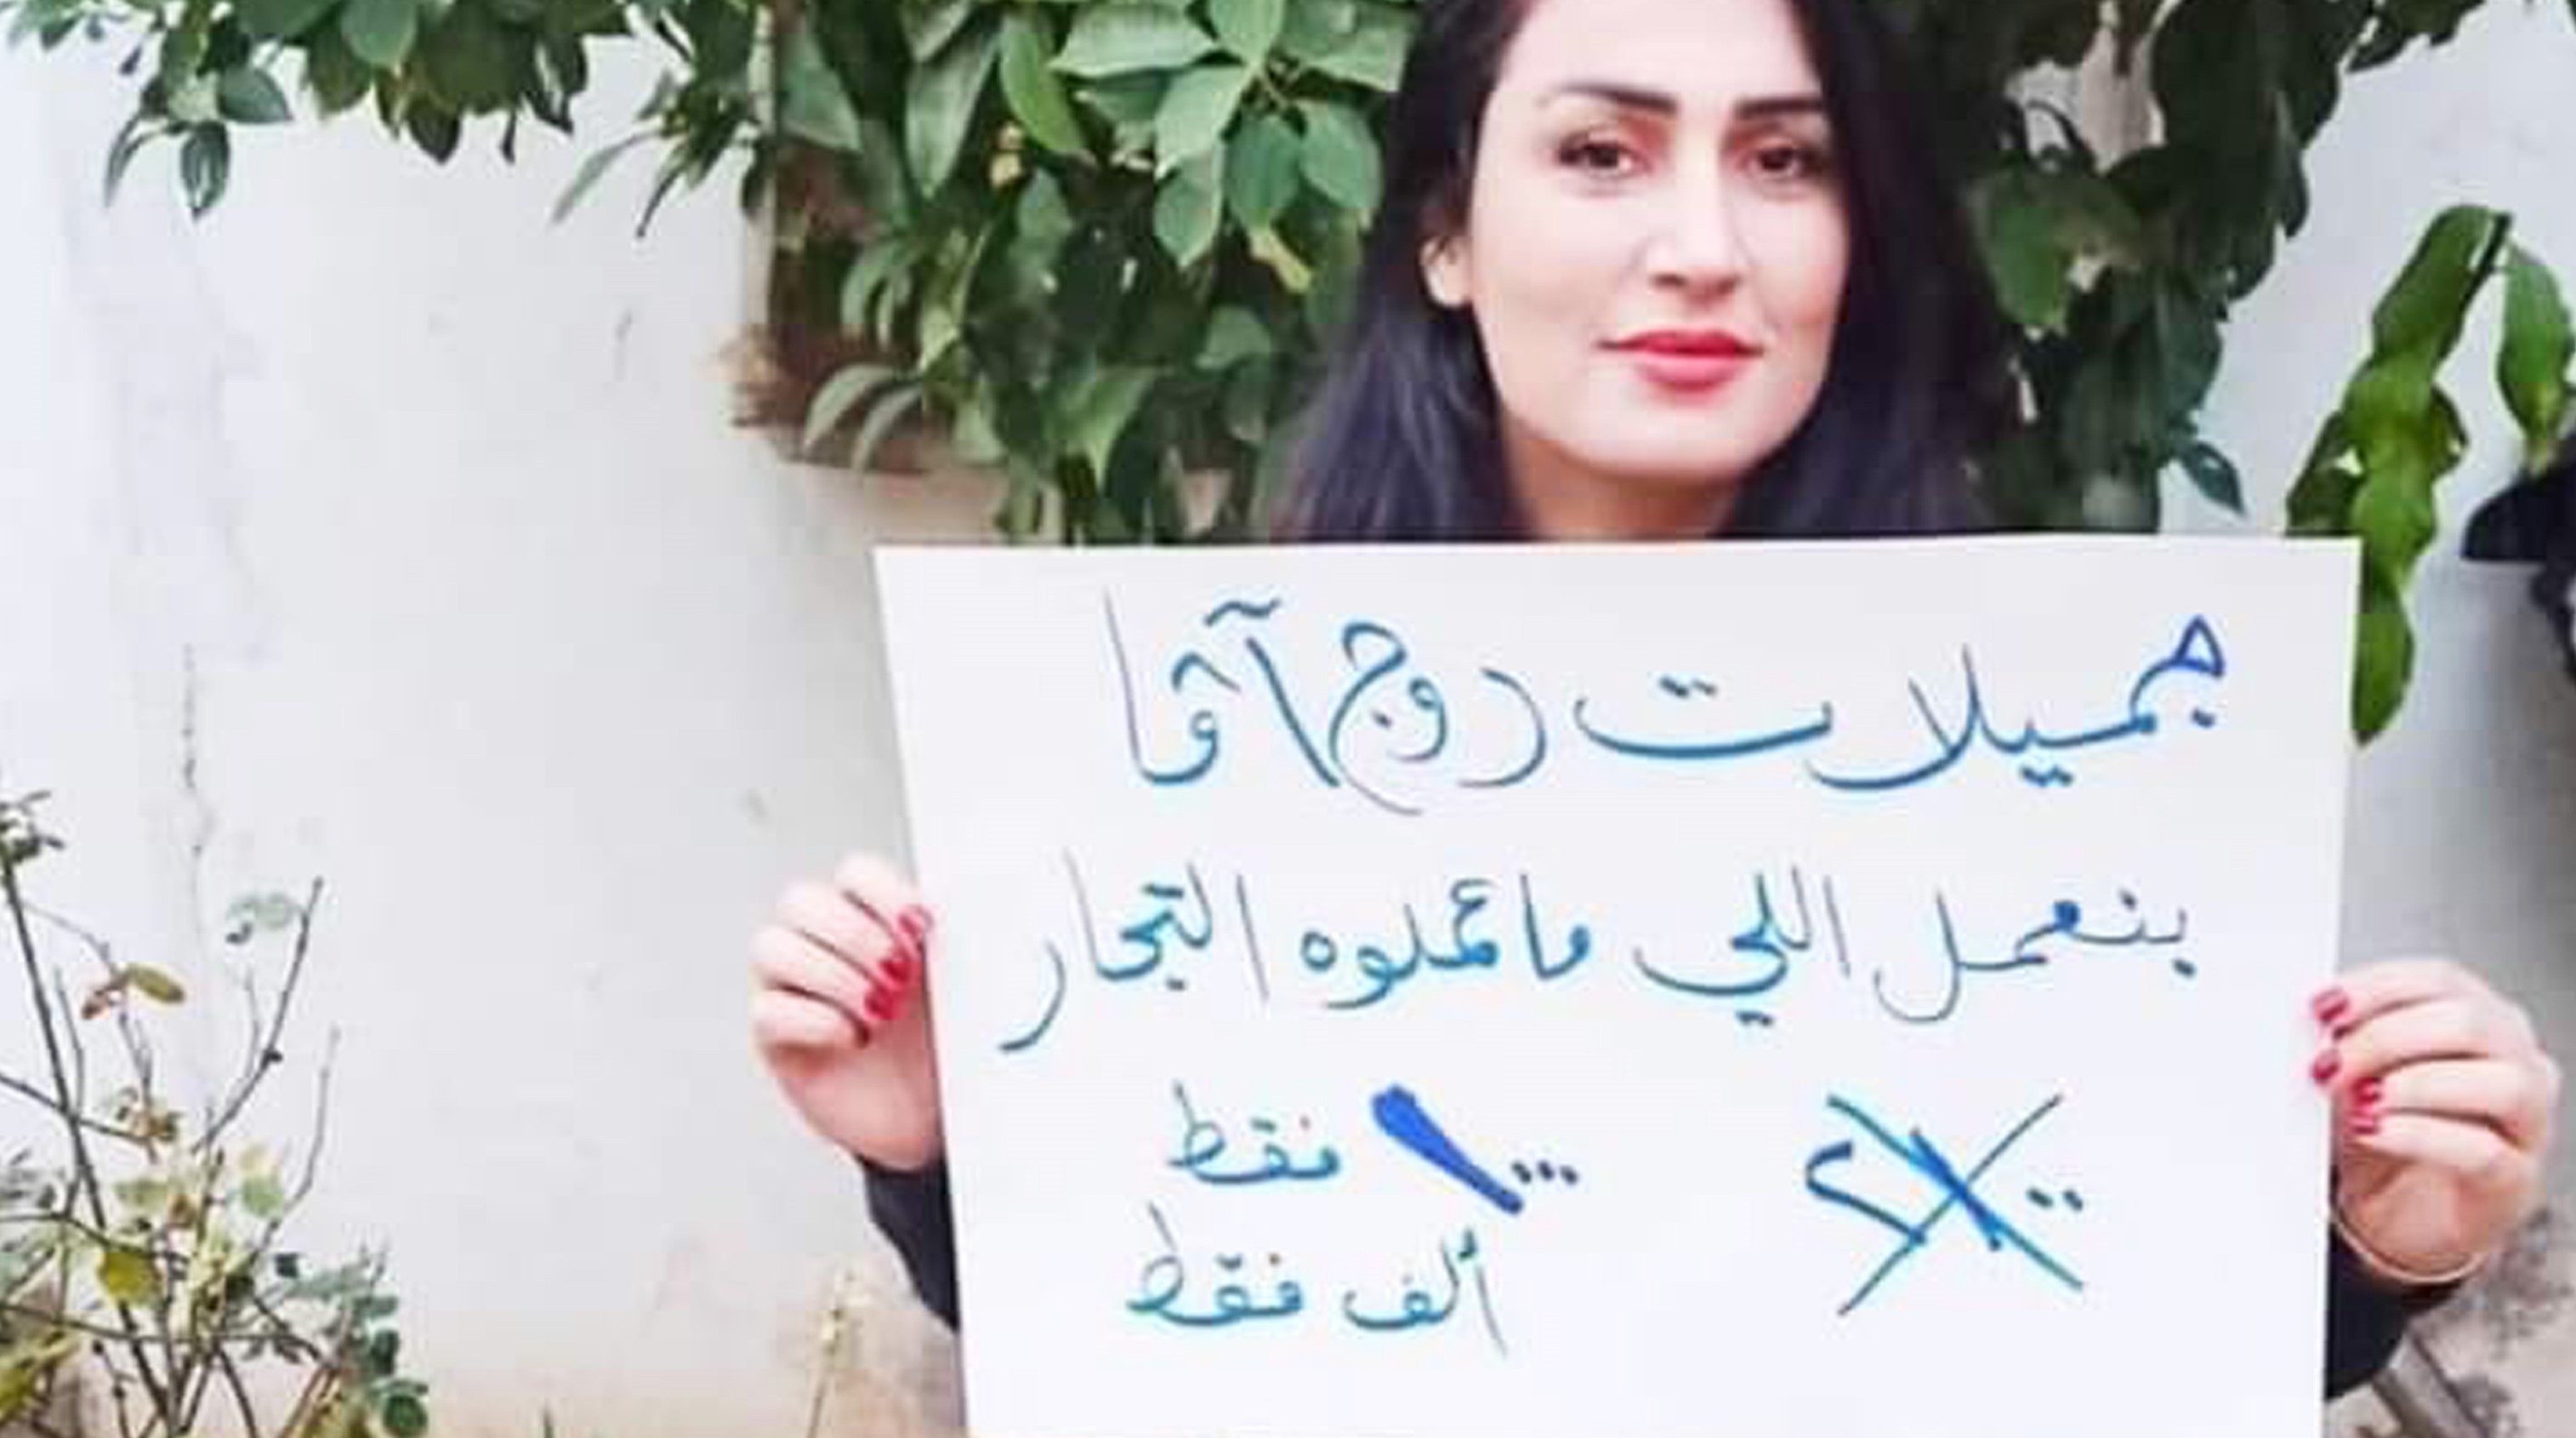 جميلات روج آفا
بنعمل اللي ما عملوه التجار
٢٠٠٠ ١٠٠٠ فقط
ألف فقط